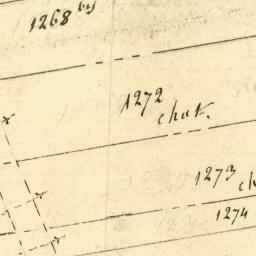 1268 bis
1272
chat.
1273 ch
1274